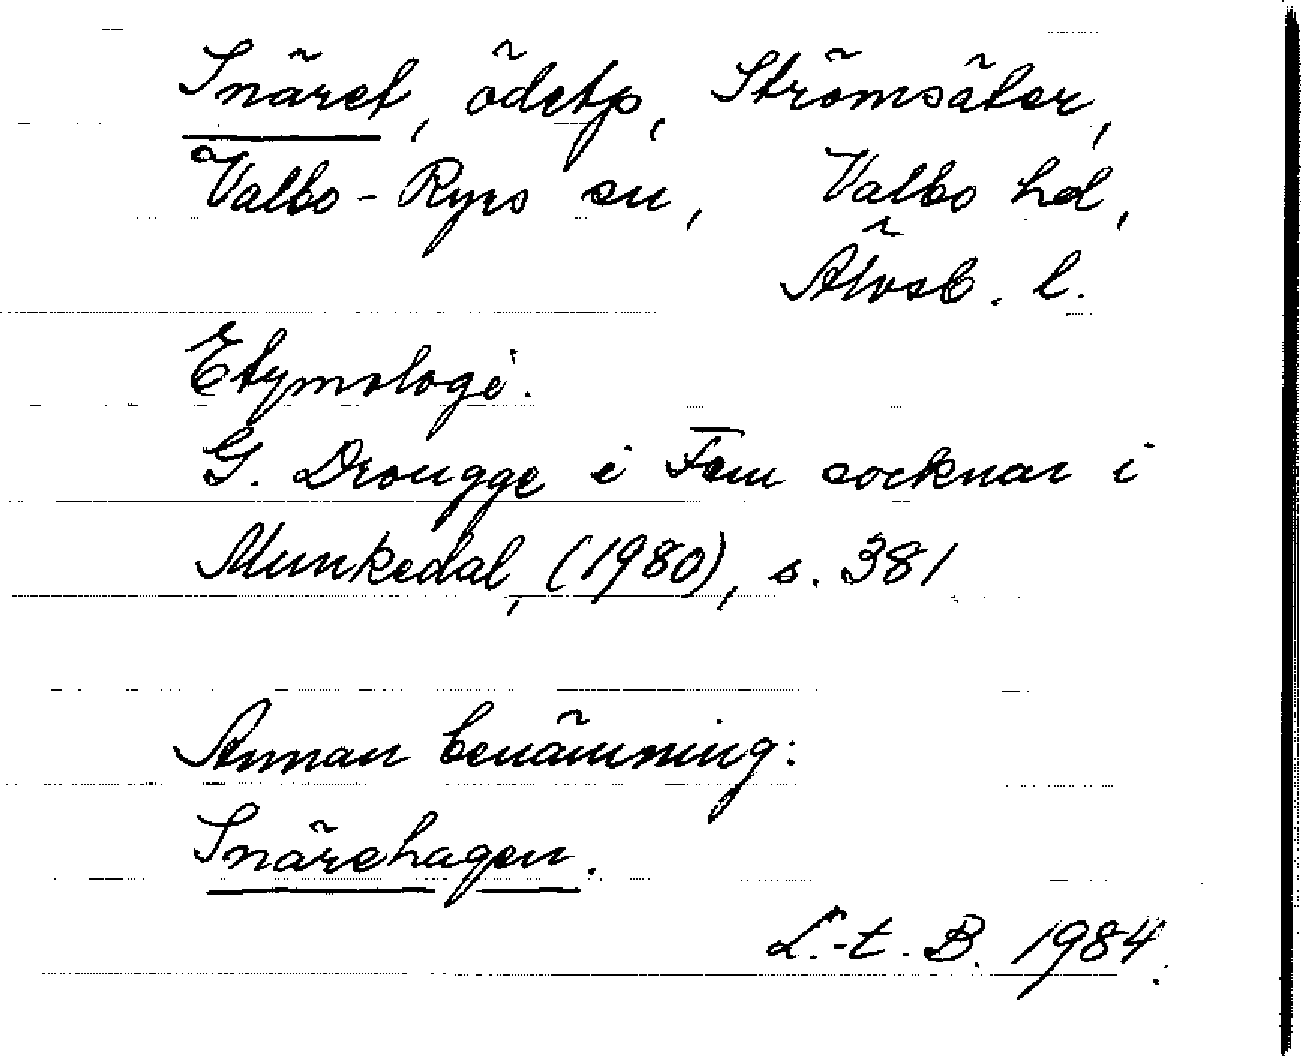 Snäret, ödetp, Strömsäter,
Valbo-Ryrs sn, Valbo hd,
Älvsb. l.
Etymologi.
G. Drougge i Fem socknar i
Munkedal, (1980), s. 381
Annan benämning:
Snärehagen.
L.-t. B. 1984.